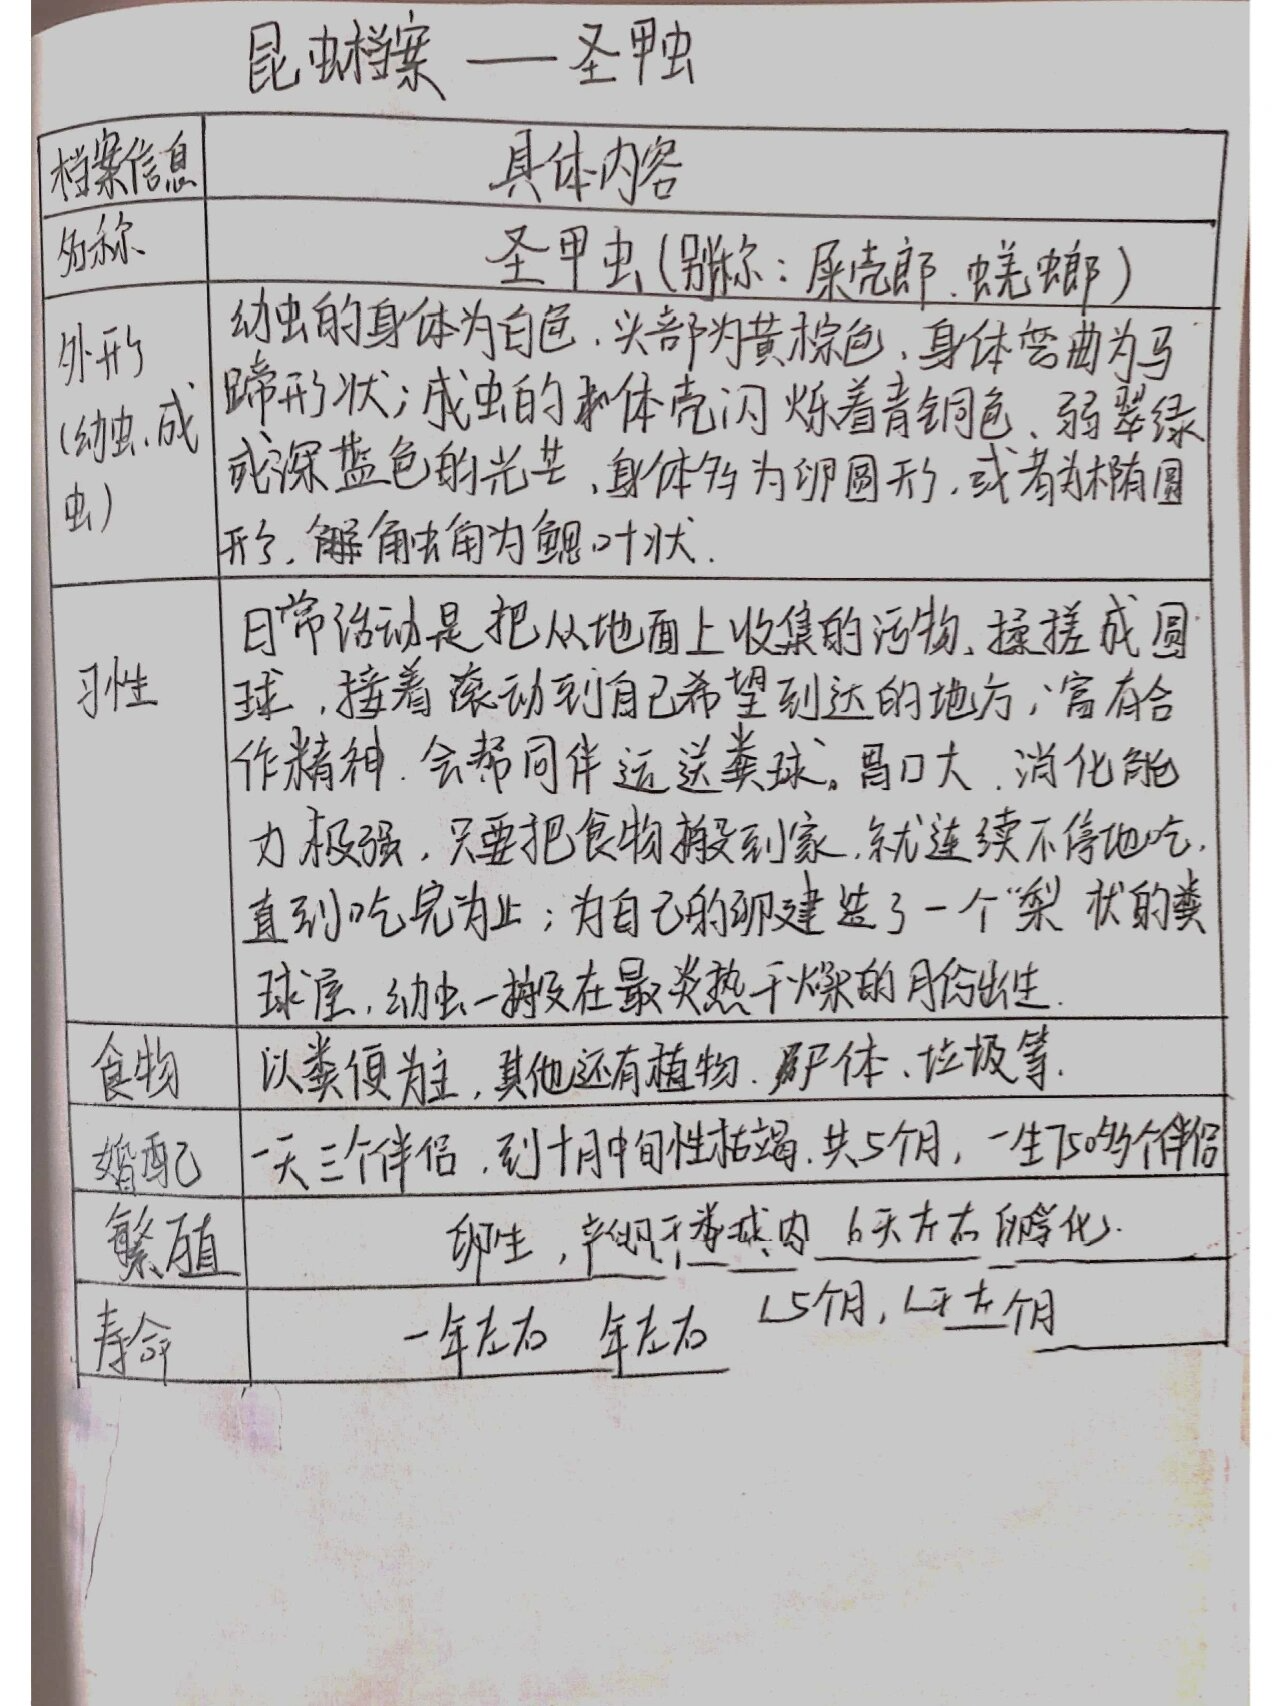 昆虫档案——圣甲虫
档案信息 具体内容
名称 圣甲虫(别称:屎壳郎、蜣螂)
外形(幼虫、成虫)
幼虫的身体为白色、头部为黄棕色、身体弯曲为马
蹄形状;成虫的体壳闪烁着青铜色、翠绿
或深蓝色的光芒、身体多为卵圆形、或者为椭圆
形、触角为鳃叶状.
习性
日常活动是把从地面上收集的污物、揉搓成圆
球,接着滚动到自己希望到达的地方;富有合
作精神.会帮同伴运送粪球。胃口大、消化能
力极强,只要把食物搬到家、就连续不停地吃.
直到吃完为止;为自己的卵建造了一个“梨状的粪
球屋,幼虫一般在最炎热干燥的月份出生.
食物 以粪便为主,其他还有植物.尸体、垃圾等.
婚配 一天三个伴侣,到十月中旬性枯竭.共5个月,一生多个伴侣
繁殖 卵生,产卵于粪球内 6天左右孵化.
寿命 一年左右 年左右 5个月, 个月